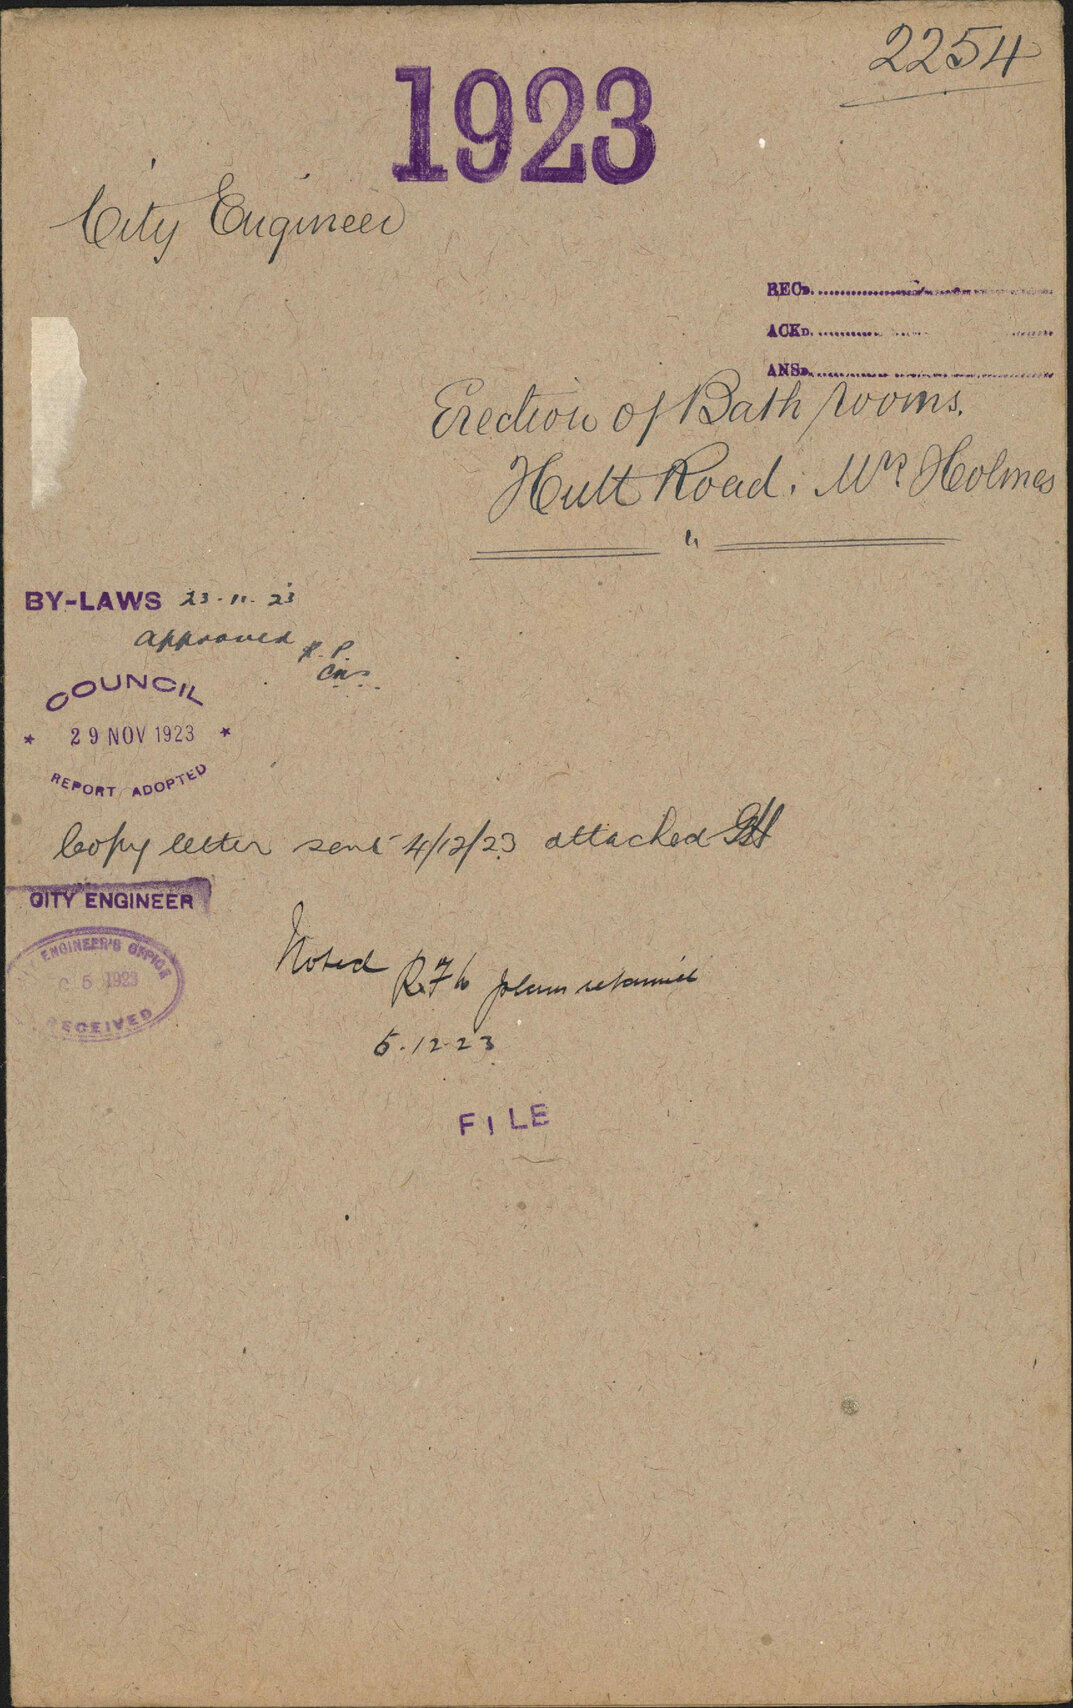 2254
1923
City Engineer
RECD.
ACKD.
ANSD.
Erection of Bath rooms.
Hutt Road: Mrs Holmes
BY-LAWS 23.11.23
approved
COUNCIL
* 29 NOV 1923 *
REPORT ADOPTED
Copy letter sent 4/12/23 attached
CITY ENGINEER
ENGINEER'S OFFICE
5 1923
RECEIVED
Noted
plan retained
5.12.23
FILE